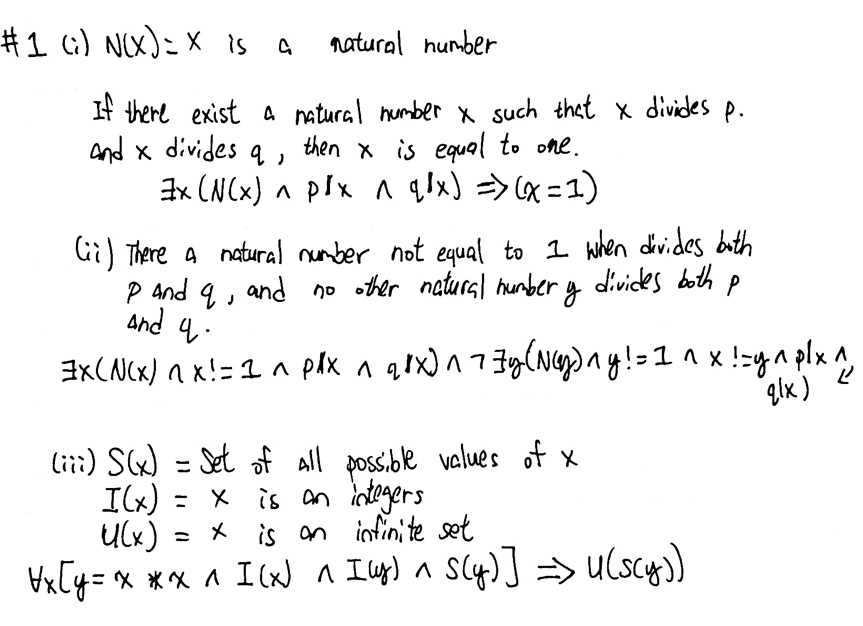 #1 (i) N(X) = X is a natural number
If there exist a natural number x such that x divides p.
and x divides q, then x is equal to one.
∃x(N(x) ∧ p|x ∧ q|x) ⇒ (x=1)
(ii) There a natural number not equal to 1 when divides both
p and q, and no other natural number y divides both p
and q.
∃x(N(x) ∧ x!=1 ∧ p|x ∧ q|x) ∧ ¬∃y(N(y) ∧ y!=1 ∧ x!=y ∧ p|x ∧
q|x)
(iii) S(x) = Set of all possible values of x
I(x) = x is an integers
U(x) = x is an infinite set
∀x[y = x * x ∧ I(x) ∧ I(y) ∧ S(y)] ⇒ U(S(y))